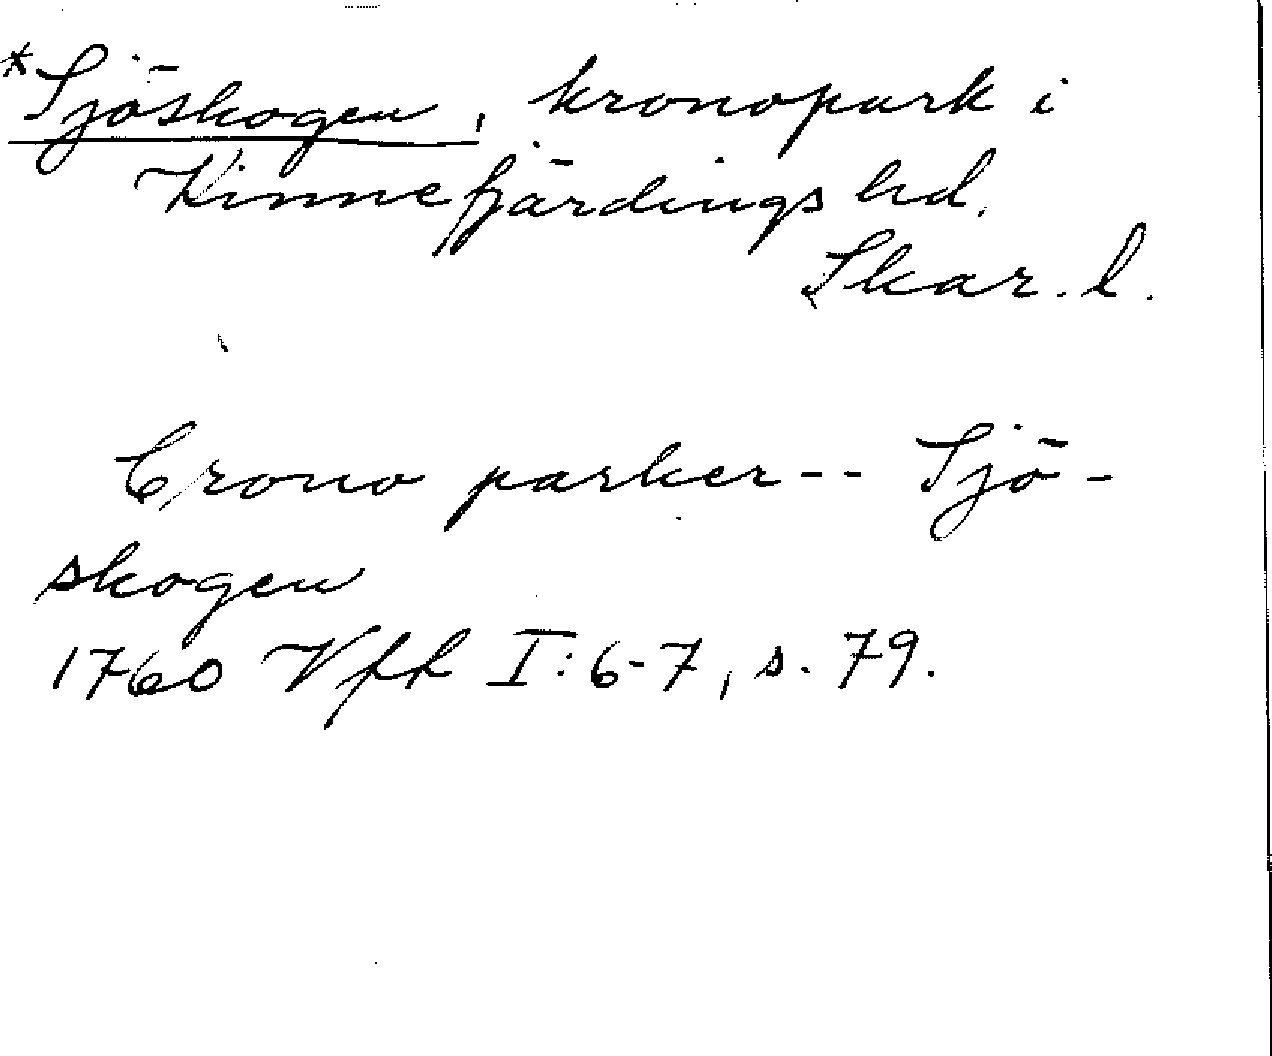 *Sjöskogen, kronopark i
Kinnefjärdings hd.
Skar. l.
Crono parker -- Sjö-
skogen
1760 Vfft I:6-7, s. 79.